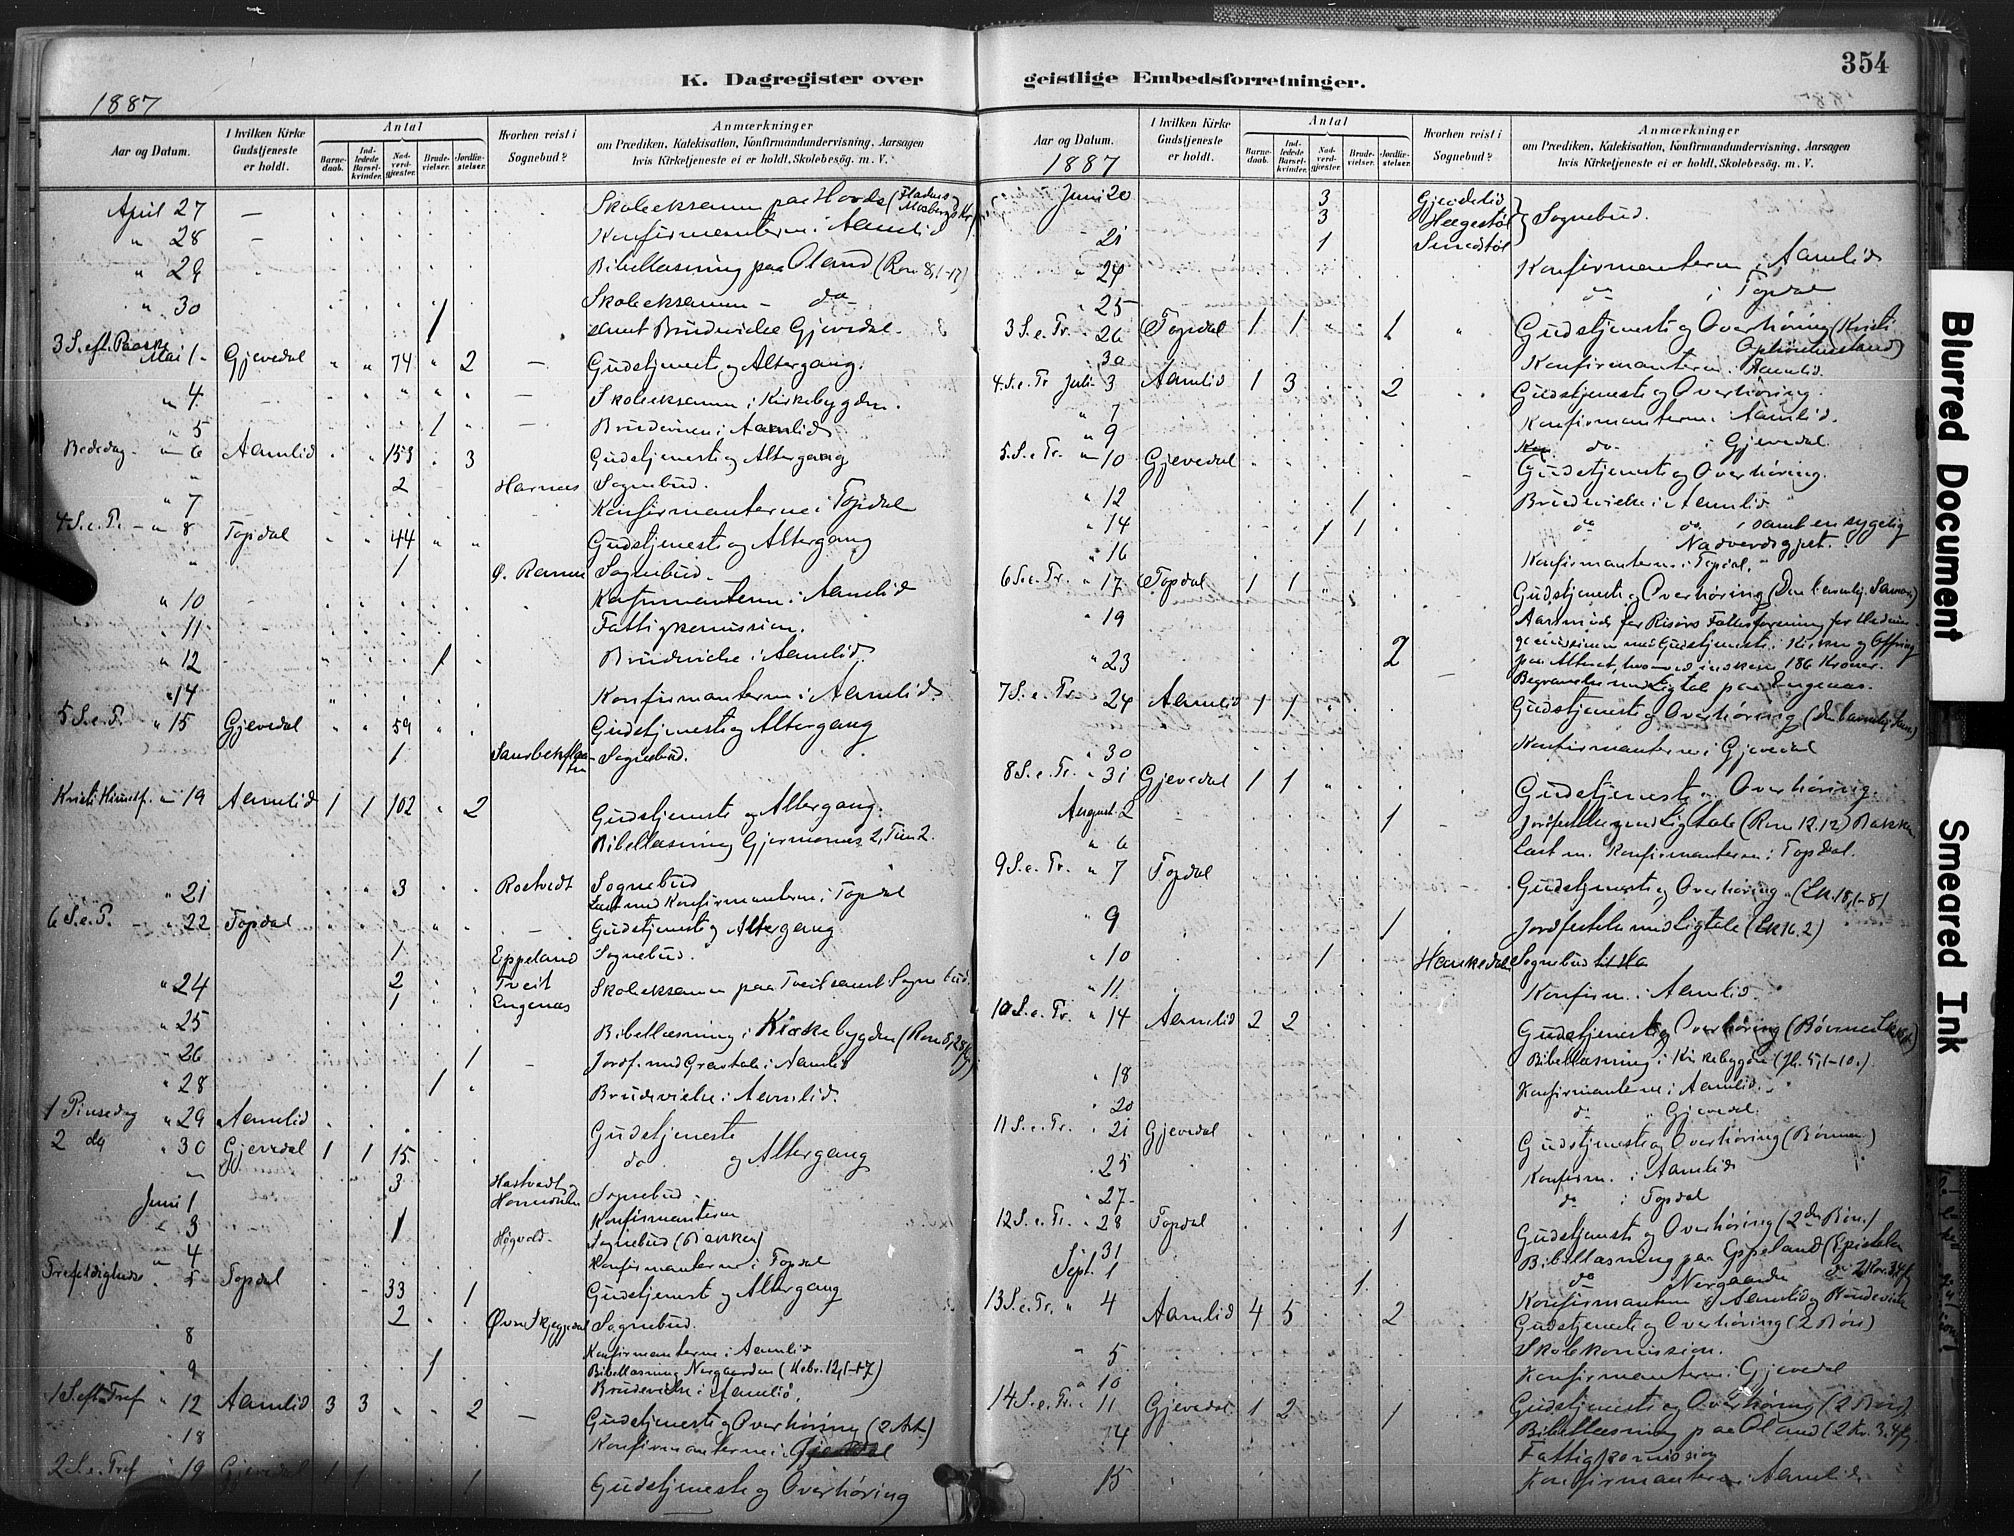 K. Dagregister over geistlige Embedsforretninger.
354
1887
Aar og Datum. | I hvilken Kirke Gudstjeneste er holdt. | Antal | Barne-daab. | Ind-ledede Barsel-kvinder. | Nad-verd-gjæster. | Brude-vielser. | Jordfæ-stelser. | Hvorhen reist i Sognebud? | Anmærkninger om Prædiken, Katekisation, Konfirmandundervisning, Aarsagen hvis Kirketjeneste ei er holdt, Skolebesøg. m. V.
April 27 — Skoleeksamen paa Hovde
" 28 — Konfirmanterne i Aamlid
" 29 Bibellæsning paa Oland (Rom 8,1-17)
" 30 Skoleeksamen - do -
1 samt Brudevielse Gjevedal.
3 S. eft. Paaske Mai 1 - Gjevedal " " 74 " 2 — Gudstjeneste og Altergang.
" 4 - Skoleeksamen i Kirkebygden.
" 5 1 — Brudevielse i Aamlid
Bededag - " 6 Aamlid 153 3 Gudstjeneste og Altergang
" 2 Harnes Sognebud.
" 7 Konfirmanterne i Topdal
4 S. e. P. - " 8 Topdal 44 Gudstjeneste og Altergang
" 1 Sognebud.
" 10 Konfirmanterne i Aamlid
" 11 Fattigkomission.
" 12 1 Brudevielse i Aamlid
" 14 Konfirmanterne i Aamlid
5 S. e. P. " 15 Gjevedal 59 Gudstjeneste og Altergang
1 Sognebud.
Kristi Himelf. " 19 Aamlid 1 1 102 " 2 Gudstjeneste og Altergang.
Bibellæsning Gjermones 2 Tim 2.
" 21 3 Sognebud
Læst med Konfirmanterne i Topdal
6 S. e. P. - " 22 Topdal — Gudstjeneste og Altergang
1 Eppeland Sognebud.
" 24 2 Tveit Skoleeksamen paa Tveit samt Sognebud.
1 Engenæs
" 25 Bibellæsning i Kirkebygden (Rom 8,28 fg)
" 26 1 — Jordf. med Gravtale i Aamlid
" 28 1 Brudevielse i Aamlid.
1 Pinsedag " 29 Aamlid Gudstjeneste
2 dg " 30 Gjevedal 1 1 15 do og Altergang
3 Hartvedt og Sognebud
Juni 1 Konfirmanterne
" 3 1 Høgvold Sognebud (Bakken)
" 4 Konfirmanterne i Topdal
Trefoldigheds " 5 Topdal 33 1 Gudstjeneste og Altergang
2 Øvre Skjeggedal Sognebud.
" 8 Konfirmanterne i Aamlid
Bibellæsning Nergaarden (Hebr. 12,1-17)
" 9 1 Brudevielse i Aamlid.
1 S. eft. Tref " 12 Aamlid 3 3 2 — Gudstjeneste og Overhøring (2 Art)
" 18 Konfirmanterne i Gjevedal
2 S. e. Tref " 19 Gjevedal 1 1 1 Gudstjeneste og Overhøring
Aar og Datum. | I hvilken Kirke Gudstjeneste er holdt. | Antal | Barne-daab. | Ind-ledede Barsel-kvinder. | Nad-verd-gjæster. | Brude-vielser. | Jordfæ-stelser. | Hvorhen reist i Sognebud? | Anmærkninger om Prædiken, Katekisation, Konfirmandundervisning, Aarsagen hvis Kirketjeneste ei er holdt, Skolebesøg. m. V.
1887
Juni 20 3 Gjevdelid
3 Hægestøl } Sognebud.
" 21 1 Smedstøl
" 24 Konfirmanterne i Aamlid
" 25 do i Topdal
3 S. e. Tr. " 26 Topdal 1 1 " " 1 " Gudstjeneste og Overhøring (Kristi Ophøielsesstand)
" 30 Konfirmanterne i Aamlid.
4 S. e. Tr Juli 3 Aamlid 1 3 2 Gudstjeneste og Overhøring.
" 7 Konfirmanterne i Aamlid.
" 9 do i Gjevedal
5 S. e. Tr. " 10 Gjevedal Gudstjeneste og Overhøring.
" 12 1 Brudevielse i Aamlid
" 14 1 1 do do, samt en sygelig Nadverdsgjest.
" 16 Konfirmanterne i Topdal.
6 S. e. Tr. " 17 Topdal 1 1 Gudstjeneste og Overhøring (Den barmhj. Samar.)
" 19 Aarsmøde for Risørs Fællesforening for Hedningemissionen med Gudstjeneste i Kirken og Offring paa Alteret, hvorved indkom 186 Kroner.
" 23 2 Begravelse med Ligtale paa Engenæs.
7 S. e. Tr. " 24 Aamlid 1 1 Gudstjeneste og Overhøring (Den barmhj. Sam.)
" 30 Konfirmanterne i Gjevedal
8 S. e. Tr. " 31 Gjevedal 1 1 Gudstjeneste og Overhøring.
August 2 1 Jordfæstelse med Ligtale (Rom 12.12) Bakken
" 6 Læst m. Konfirmanterne i Topdal.
9 S. e. Tr. " 7 Topdal Gudstjeneste og Overhøring (Lk. 18,1-8)
" 9 1 Jordfæstelse med Ligtale (Lk 16.2)
" 10 1 Haukedal Sognebud
" 11 Konfirm. i Aamlid.
10 S. e. Tr. " 14 Aamlid 2 2 Gudstjeneste og Overhøring
" 18 Bibellæsning i Kirkebygden (Jh. 5,1-10.)
" 20 Konfirmanterne i Aamlid.
do " Gjevedal.
11 S. e. Tr. " 21 Gjevedal Gudstjeneste og Overhøring (Bønnen)
" 25 Konfirm. i Aamlid
" 27 do i Topdal
12 S. e. Tr. " 28 Topdal 1 Gudstjeneste og Overhøring (2den Bøn.)
" 31 Bibellæsning paa Eppeland (Epistelen
Sept. 1 1 do Nergaarden do 2 Kor. 3,4 fg
13 S. e. Tr. " 4 Aamlid 4 5 2 Konfirmanterne i Aamlid og Brudevielse
Gudstjeneste og Overhøring (2 Bøn)
" 5 Skolekomission.
" 10 Konfirmanterne i Gjevedal
14 S. e. Tr. " 11 Gjevedal 1 2 1 Gudstjeneste og Overhøring (2 Bøn).
14 Bibellæsning paa Oland (2 Kr. 3.4 fg.
Fattigkomission
15 Konfirmanterne i Aamlid
Blurred Document
Smeared Ink